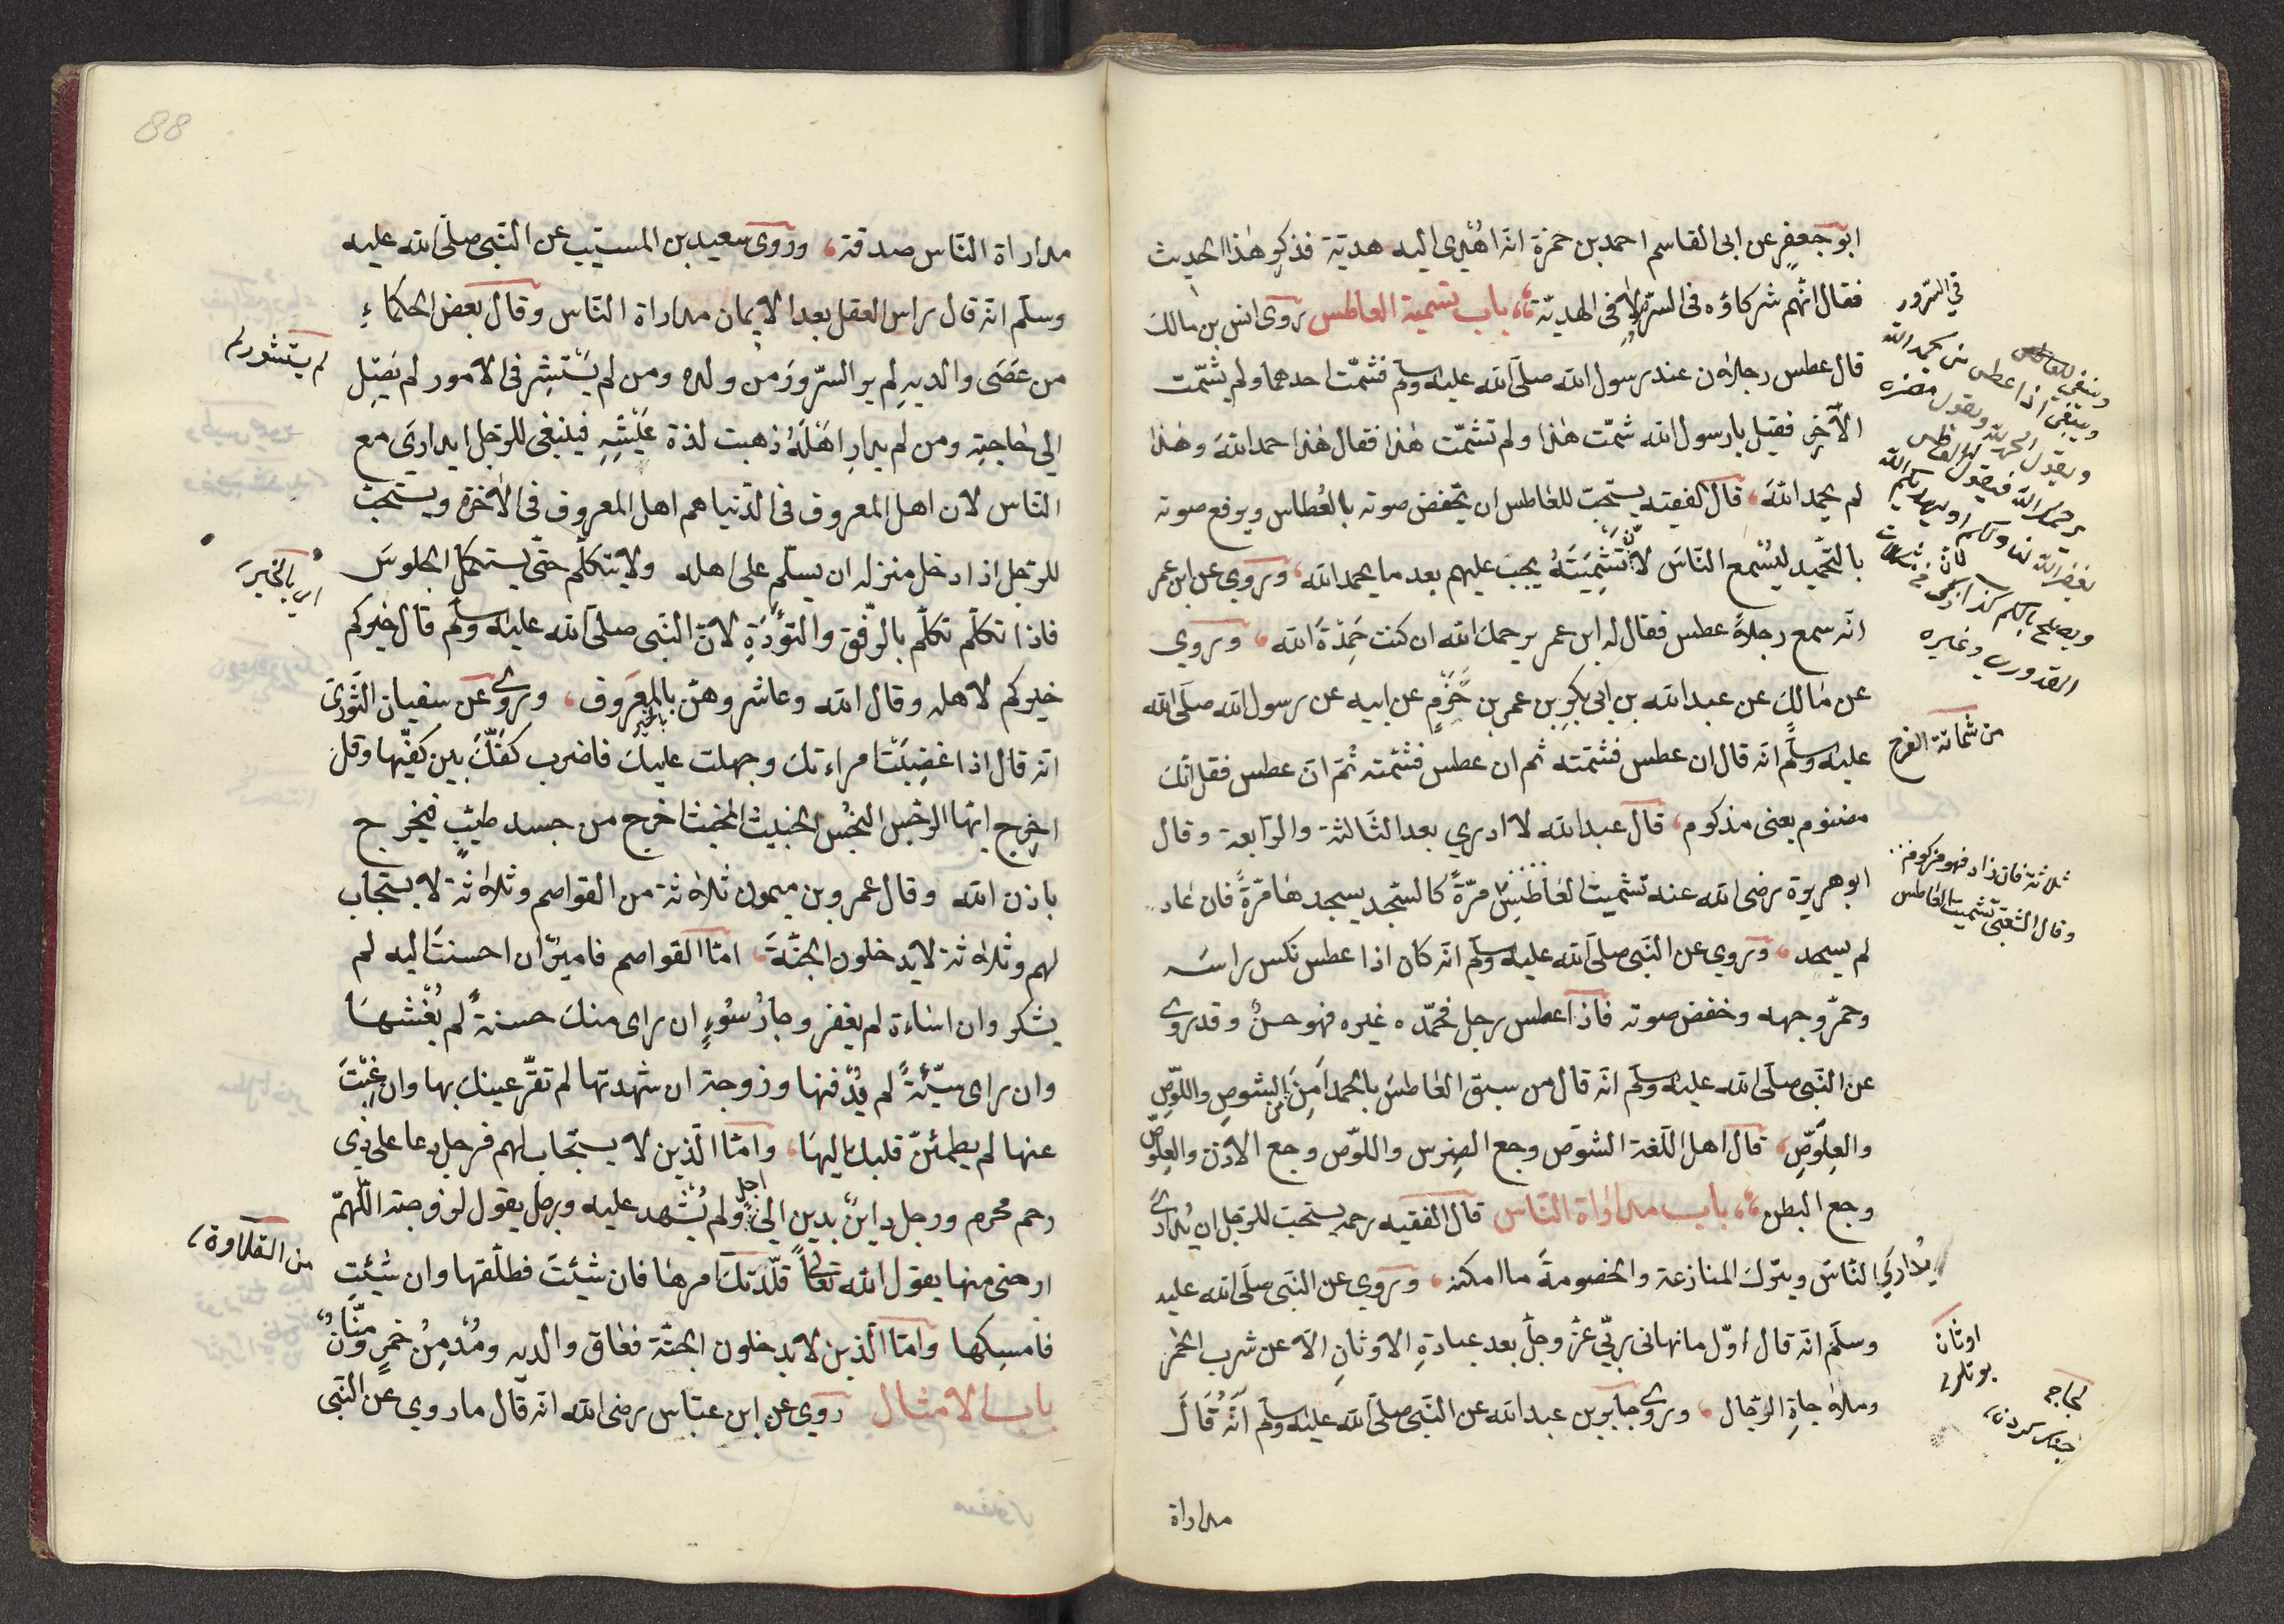 ابو جعفر عن ابى القاسم احمد بن حمزة انه اهدى اليه هدية فذكر هذا الحديث
فقال انهم شركاؤه فى السرّ لا فى الهديّة باب تسمية العاطس روى انس بن مالك
قال عطس رجلان عند رسول الله صلى الله عليه وسلم فشمّت احدهما ولم يشمّت
الآخر فقيل يا رسول الله شمّت هذا ولم تشمّت هذا فقال هذا حمد الله وهذا
لم يحمد الله قال الفقيه يستحبّ للعاطس ان يخفض صوته بالعطاس ويرفع صوته
بالتحميد ليسمع الناس لانّ تشميته يجب عليهم بعد ما يحمد الله وروي عن ابن عمر
انه سمع رجلاً عطس فقال له ابن عمر يرحمك الله ان كنت حمدة الله وروي
عن مالك عن عبد الله بن ابى بكر بن عمر بن حزم عن ابيه عن رسول الله صلى الله
عليه وسلم انه قال ان عطس فشمته ثم ان عطس فشمّته ثمّ ان عطس فقل انّك
مضنوم يعنى مذكوم قال عبد الله لا ادري بعد الثالثة والرابعة وقال
ابو هريرة رضى الله عنه تشميت العاطس مرّة كالسّجد يسجدها مرّة فان عاد
لم يسجد وروي عن النبى صلى الله عليه وسلم انه كان اذا عطس نكس راسه
وخمّر وجهه وخفض صوته فاذا عطس رجل فحمّده غيره فهو حسن وقد روى
عن النبى صلى الله عليه وسلم انه قال من سبق العاطس بالحمد امن من الشوص واللوّص
والعلوّص قال اهل اللغة الشوص وجع الضرس واللوّص وجع الاذن والعلوّص
وجع البطن باب مداراة الناس قال الفقيه رحمه يستحبّ للرّجل ان يدارى
يدارى الناس ويترك المنازعة والخصومة ما امكنه وروي عن النبى صلى الله عليه
وسلم انه قال اوّل ما نهانى ربّى عزّ وجلّ بعد عبادة الاوثان الاّ عن شرب الخمر
وملاحاة الرجال وروى جابر بن عبد الله عن النبى صلى الله عليه وسلم انه قال
مداراة
في السّرور
وينبغي للعاطس
وينبغى اذا عطس من يحمد الله
ويقول الحمد لله ويقول
يرحمك الله فيقول العاطس
يغفر الله لنا ولكم او يهديكم الله
ويصلح بالكم كذا ذكر فى
القدورى وغيره
من شماتة الفرح
ثلاثة فان زاد فهو مزكوم
وقال الشعبى تشميت العاطس
اوثان
بوتلر
لجاجه
جنك كردن
88
مداراة الناس صدقة وروى سعيد بن المسيب عن النبى صلى الله عليه
وسلم انه قال راس العقل بعد الايمان مداراة الناس وقال بعض الحكماء
من عصى والديه لم ير السّرور من ولده ومن لم يستشر فى الامور لم يصل
الى حاجته ومن لم يدار اهله ذهبت لذة عيشه فينبغى للرجل ان يدارى مع
الناس لان اهل المعروف فى الدّنيا هم اهل المعروف فى الآخرة ويستحب
للرجل اذا دخل منزله ان يسلّم على اهله ولا يتكلّم حتّى يستكمل الجلوس
فاذا تكلّم تكلّم بالرّفق والتؤدة لانّ النبى صلى الله عليه وسلم قال خيركم
خيركم لاهله وقال الله وعاشروهنّ بالمعروف وروى عن سفيان الثورى
انه قال اذا غضبت امراءتك وجهلت عليك فاضرب كفّك بين كفّيها وقل
اخرج ايها الرجس النجس الخبيث المخبث اخرج من جسد طيّب فيخرج
باذن الله وقال عمرو بن ميمون ثلاثة من القواصم وثلاثة لا يستجاب
لهم وثلاثة لا يدخلون الجنّة امّا القواصم فاميرٌ ان احسنت اليه لم
يشكر وان اساءة لم يغفر وجار سوء ان راى منك حسنة لم يغشها
وان راى سيّئة لم يدفنها وزوجة ان شهدتها لم تقرّ عينك بها وان غبت
عنها لم يطمئنّ قلبك اليها وامّا الذين لا يستجاب لهم فرجل دعا على ذى
رحم محرم ورجل داين بدين الى اجل ولم يشهد عليه ورجل يقول لزوجته اللّهمّ
ارحنى منها يقول الله تعالى قلّدتك امرها فان شيئت فطلّقها وان شيئت
فامسكها وامّا الذين لا يدخلون الجنّة فعاق والديه ومدمن خمر ومنّان
باب الامثال روي عن ابن عبّاس رضى الله انه قال ما روي عن النبى
لم يستشور لم
اى بالخير
بالخير
من القلاوة